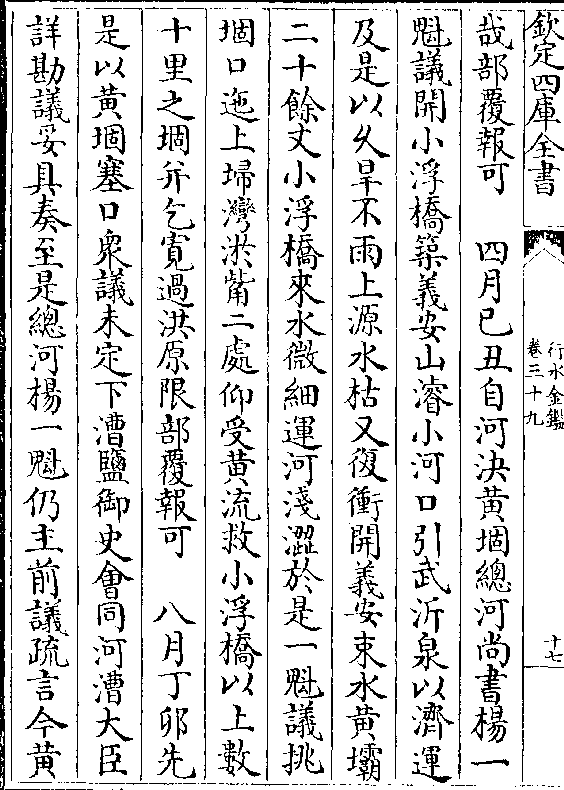 欽定四庫全書
行水金鑑
卷三十九
十七
哉部覆報可　四月己丑自河決黃堌總河尚書楊一
魁議開小浮橋築義安山濬小河口引武沂泉以濟運
及是以久旱不雨上源水枯又復衝開義安束水黃壩
二十餘丈小浮橋來水微細運河淺澀於是一魁議挑
堌口迤上埽灣淤觜二處仰受黃流救小浮橋以上數
十里之堌并乞寬過洪原限部覆報可　八月丁卯先
是以黃堌塞口衆議未定下漕鹽御史會同河漕大臣
詳勘議妥具奏至是總河楊一魁仍主前議疏言今黃